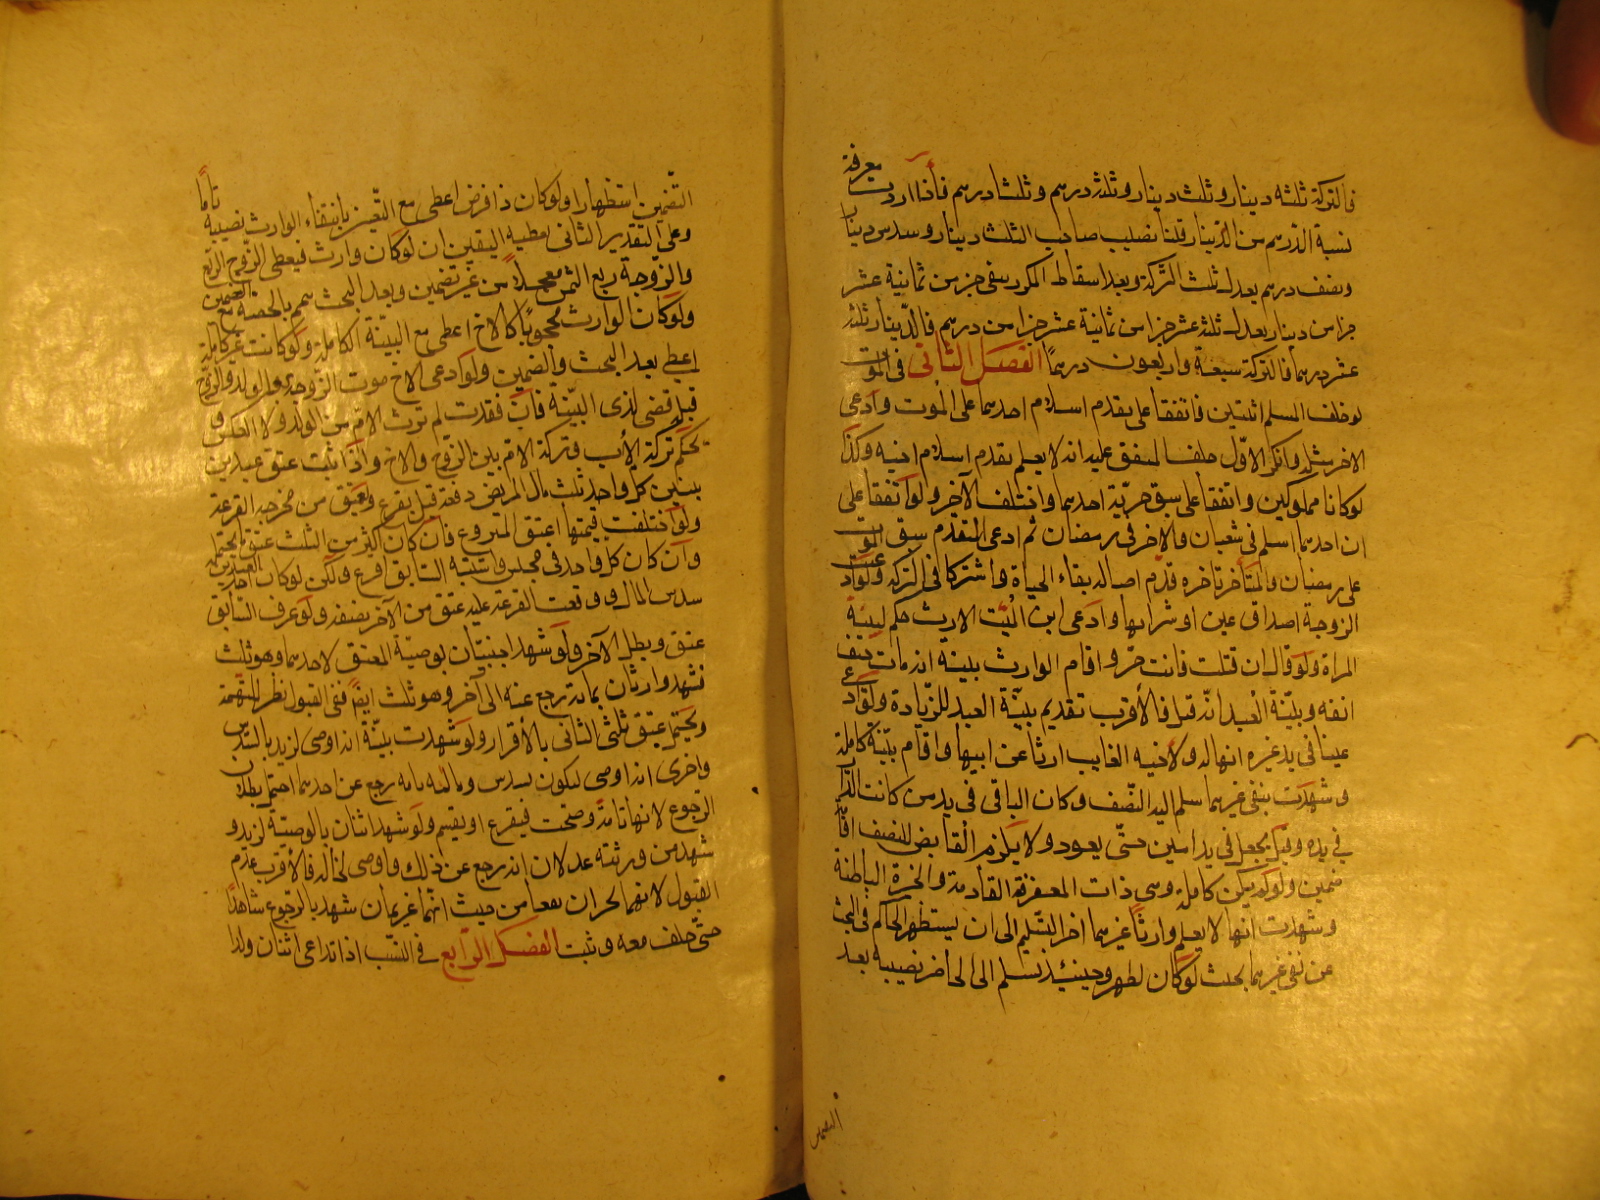 فالتركة ثلثة دينار وثلث دينار وثلثة درهم وثلثا درهم فأذا اردت معرفة
نسبة الدرهم من الدينار قلنا نصيب صاحب الثلث دينار وسدس دينار
ونصف درهم يعدل ثلث التركة وبعد اسقاط المكرر يبقى جزء من ثمانية عشر
جزا من دينار يعدل ثلثة عشر جزا من ثمانية عشر جزا من درهم فالدينار ثلثة
عشر درهما فالتركة سبعة واربعون درهما الفصل الثاني في الموت
لو خلف المسلم اثنين فاتفقا على تقدم اسلام احدهما على الموت وادعى
الاخر مثله وانكر الاول حلف المتفق عليه انه لا يعلم تقدم اسلام اخيه وكذا
لو كانا مملوكين واتفقا على سبق حرية احدهما واختلف الآخر ولو اتفقا على
ان احدهما اسلم في شعبان والاخر في رمضان ثم ادعى المتقدم سبق الموت
على رمضان والمتأخر تاخره قدم اصالة بقاء الحياة واشتركا في التركة ولو ادعت
الزوجة اصداق عين او شرائها وادعى ابن الميت الارث حكم لبينة
المراة ولو قال ان قتلت فانت حر واقام الوارث بينة انه مات حتف
انفه وبينة العبد انه قتل فالأقرب تقديم بينة العبد للزيادة ولو ادعى
عينا في يد غيره انها له ولأخيه الغايب ارثا عن ابيها واقام بينة كاملة
وشهدت بنفي غيرهما سلم اليه النصف وكان الباقي في يد من كانت الدار
في يده وقيل يجعل في يد امين حتى يعود ولا يلزم القابض للنصف اقامة
ضمين ولو لم يكن كاملة وهي ذات المعرفة القادمة والخبرة الباطنة
وشهدت انها لا يعلم وارثا غيرهما اخر التسليم الى ان يستظهر الحاكم في البحث
عن نفي غيرهما بحيث لو كان لظهر وحينئذ يسلم الى الحاضر نصيبه بعد
التضمين
التضمين استظهارا ولو كان ذا فرض اعطى مع التعيين بانتفاء الوارث نصيبه تاما
وعلى التقدير الثاني يعطيه اليقين ان لو كان وارث فيعطى الزوج الربع
والزوجة ربع الثمن معجلا من غير تضمين وبعد البحث يتم بالحصة مع التضمين
ولو كان الوارث محجوبا كالاخ اعطى مع البينة الكاملة ولو كانت غير كاملة
اعطي بعد البحث والتضمين ولو ادعى الاخ موت الزوجة والولد والزوج
قبل قضى لذى البينة فان فقدت لم ترث الام من الولد ولا العكس و
يحكم تركة الأب وتركة الام بين الزوج والاخ واذا ثبت عتق عبدين
ببينين كل واحد ثلث مال المريض دفعة قيل يقرع ويعتق من مخرجه القرعة
ولو اختلفت قيمتها اعتق المقروع فان كان اكثر من الثلث عتق محتمله
وان كان كل واحد في مجلس واشتبه السابق اقرع ولكن لو كان احد العبدين
سدس المال ووقعت القرعة عليه عتق من الآخر نصفه ولو عرف السابق
عتق وبطل الآخر ولو شهد اجنبيان بوصية المعتق لاحدهما وهو ثلث
فشهد وارثان بمانه رجع عنه الى آخر وهو ثلث ايضا ففى القبول نظر للتهمة
ويحتمل عتق ثلثى الثانى بالأقرار ولو شهدت بينة انه اوصى لزيد بالسدس
واخرى انه اوصى لبكر بسدس وثالثة بانه رجع عن احدهما احتمل بطلان
الرجوع لانها تامة وصحت فيقرع او يقسم ولو شهد اثنان بالوصية لزيد و
شهد من ورثته عدلان انه رجع عن ذلك واوصى لخالد فالأقرب عدم
القبول لانهما يجران نفعا من حيث انهما غريمان شهد بالرجوع شاهدا
حتى حلف معه وثبت الفصل الرابع في النسب اذا تداعى اثنان ولدا